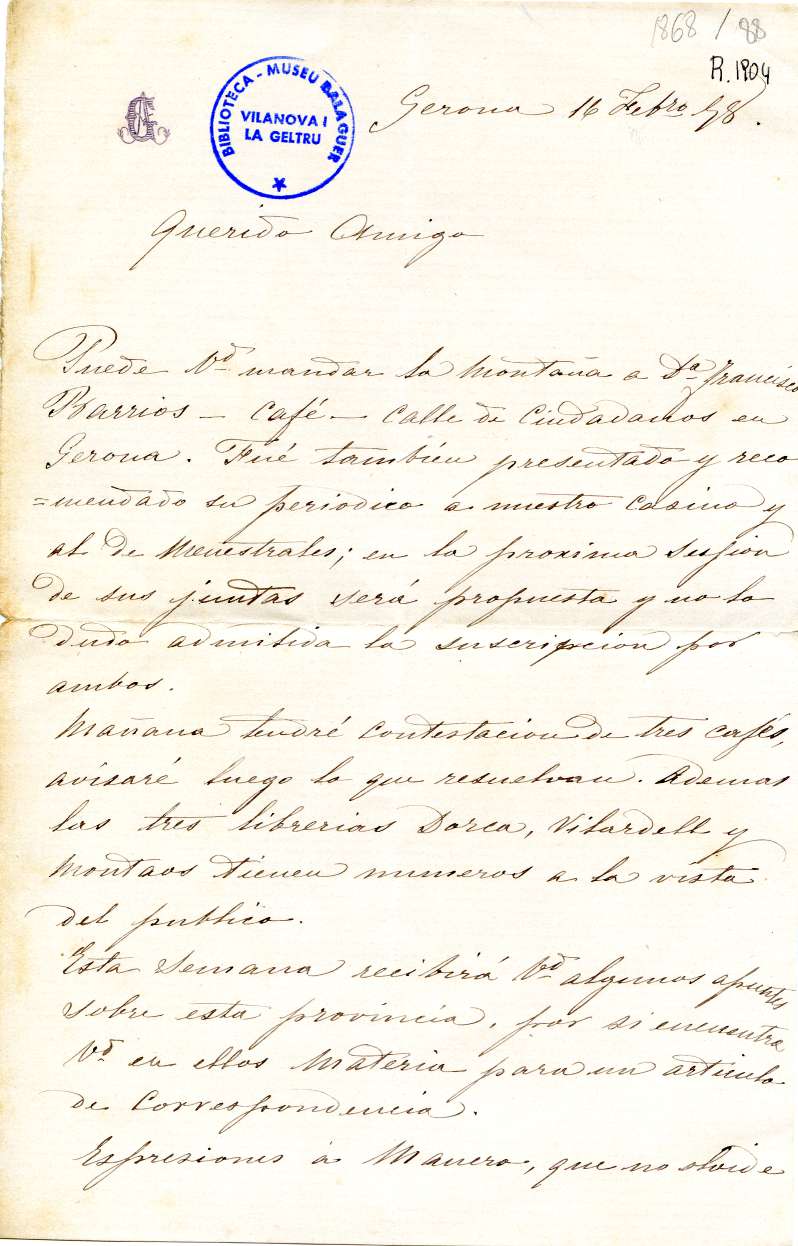 1868 / 88
R. 1904
BIBLIOTECA - MUSEU BALAGUER
VILANOVA I
LA GELTRU
Gerona 16 Febro 68.
Querido Amigo
Puede Vd mandar la Montaña a Da Francisco
Barrios - Café - calle de Ciudadanos en
Gerona. Fué tambien presentado y reco
=mendado su periodico a nuestro casino y
al de Menestrales; en la proxima session
de sus juntas será propuesta y no lo
dudo admitida la suscripcion por
ambos.
Mañana tendré contestacion de tres cafés,
avisaré luego lo que resuelvan. Ademas
las tres librerias Dorca, Vilardell y
Montaos tienen numeros a la vista
del publico.
Esta semana recibirá Vd algunos apuntes
sobre esta provincia, por si encuentra
Vd en ellos materia para un articulo
de correspondencia.
Espresiones á Manero, que no olvide